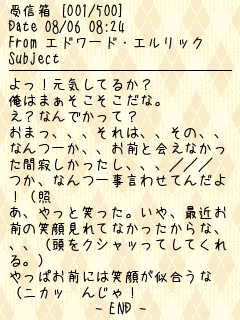 受信箱 [001/500]
Date 08/06 08:24
From エドワード・エルリック
Subject
よっ！元気してるか？
俺はまぁそこそこだな。
え？なんでかって？
おまっ、、、それは、、その、、
なんつーか、、お前と会えなかっ
た間寂しかったし、、、／／／
つか、なんつー事言わせてんだよ
！（照
あ、やっと笑った。いや、最近お
前の笑顔見れてなかったからな、
、、（頭をクシャッってしてくれ
る。）
やっぱお前には笑顔が似合うな
（ニカッ　んじゃ！
- END -